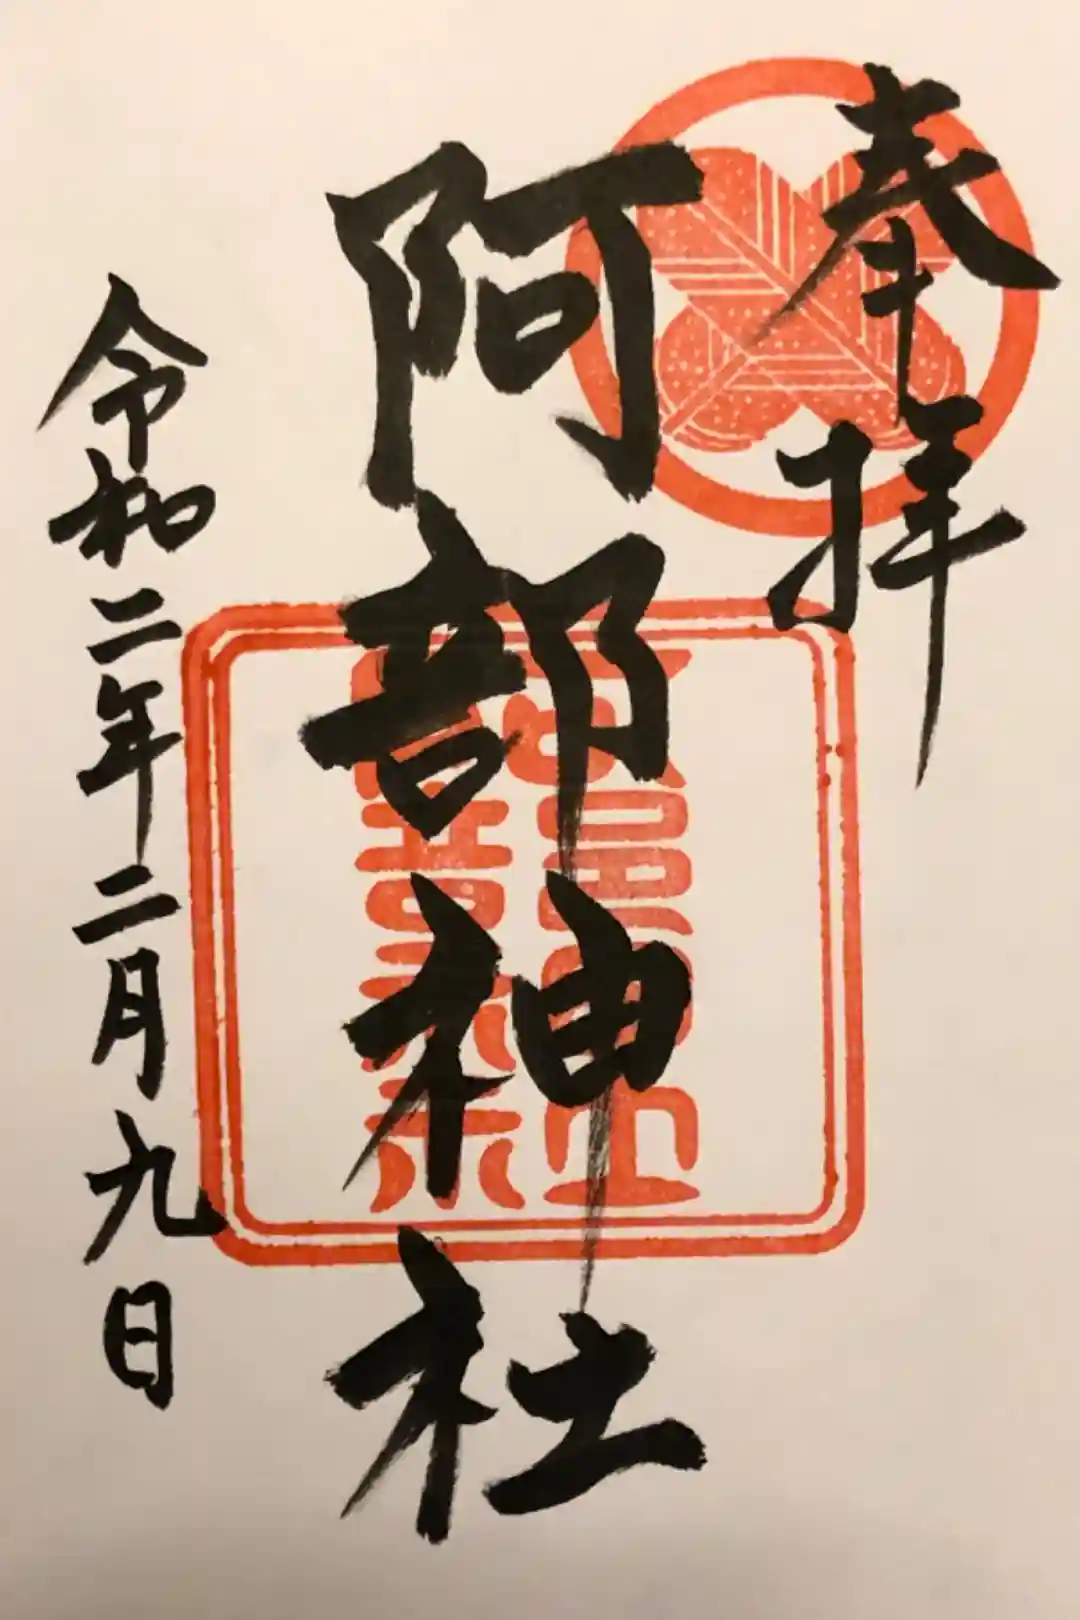 奉拝
阿部神社
令和二年二月九日